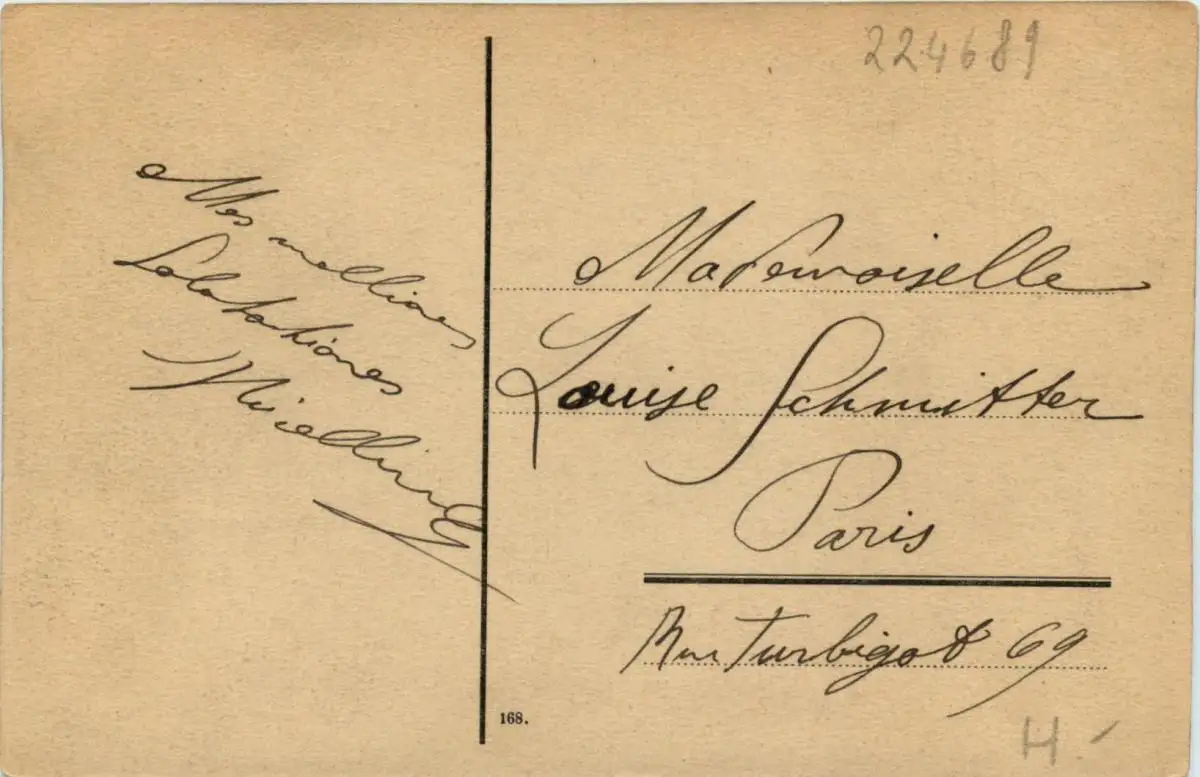 224689
Mes mellior
Salutationes
Mademoiselle
Louise Schmitter
Paris
Rue Turbigot 69
168.
H -